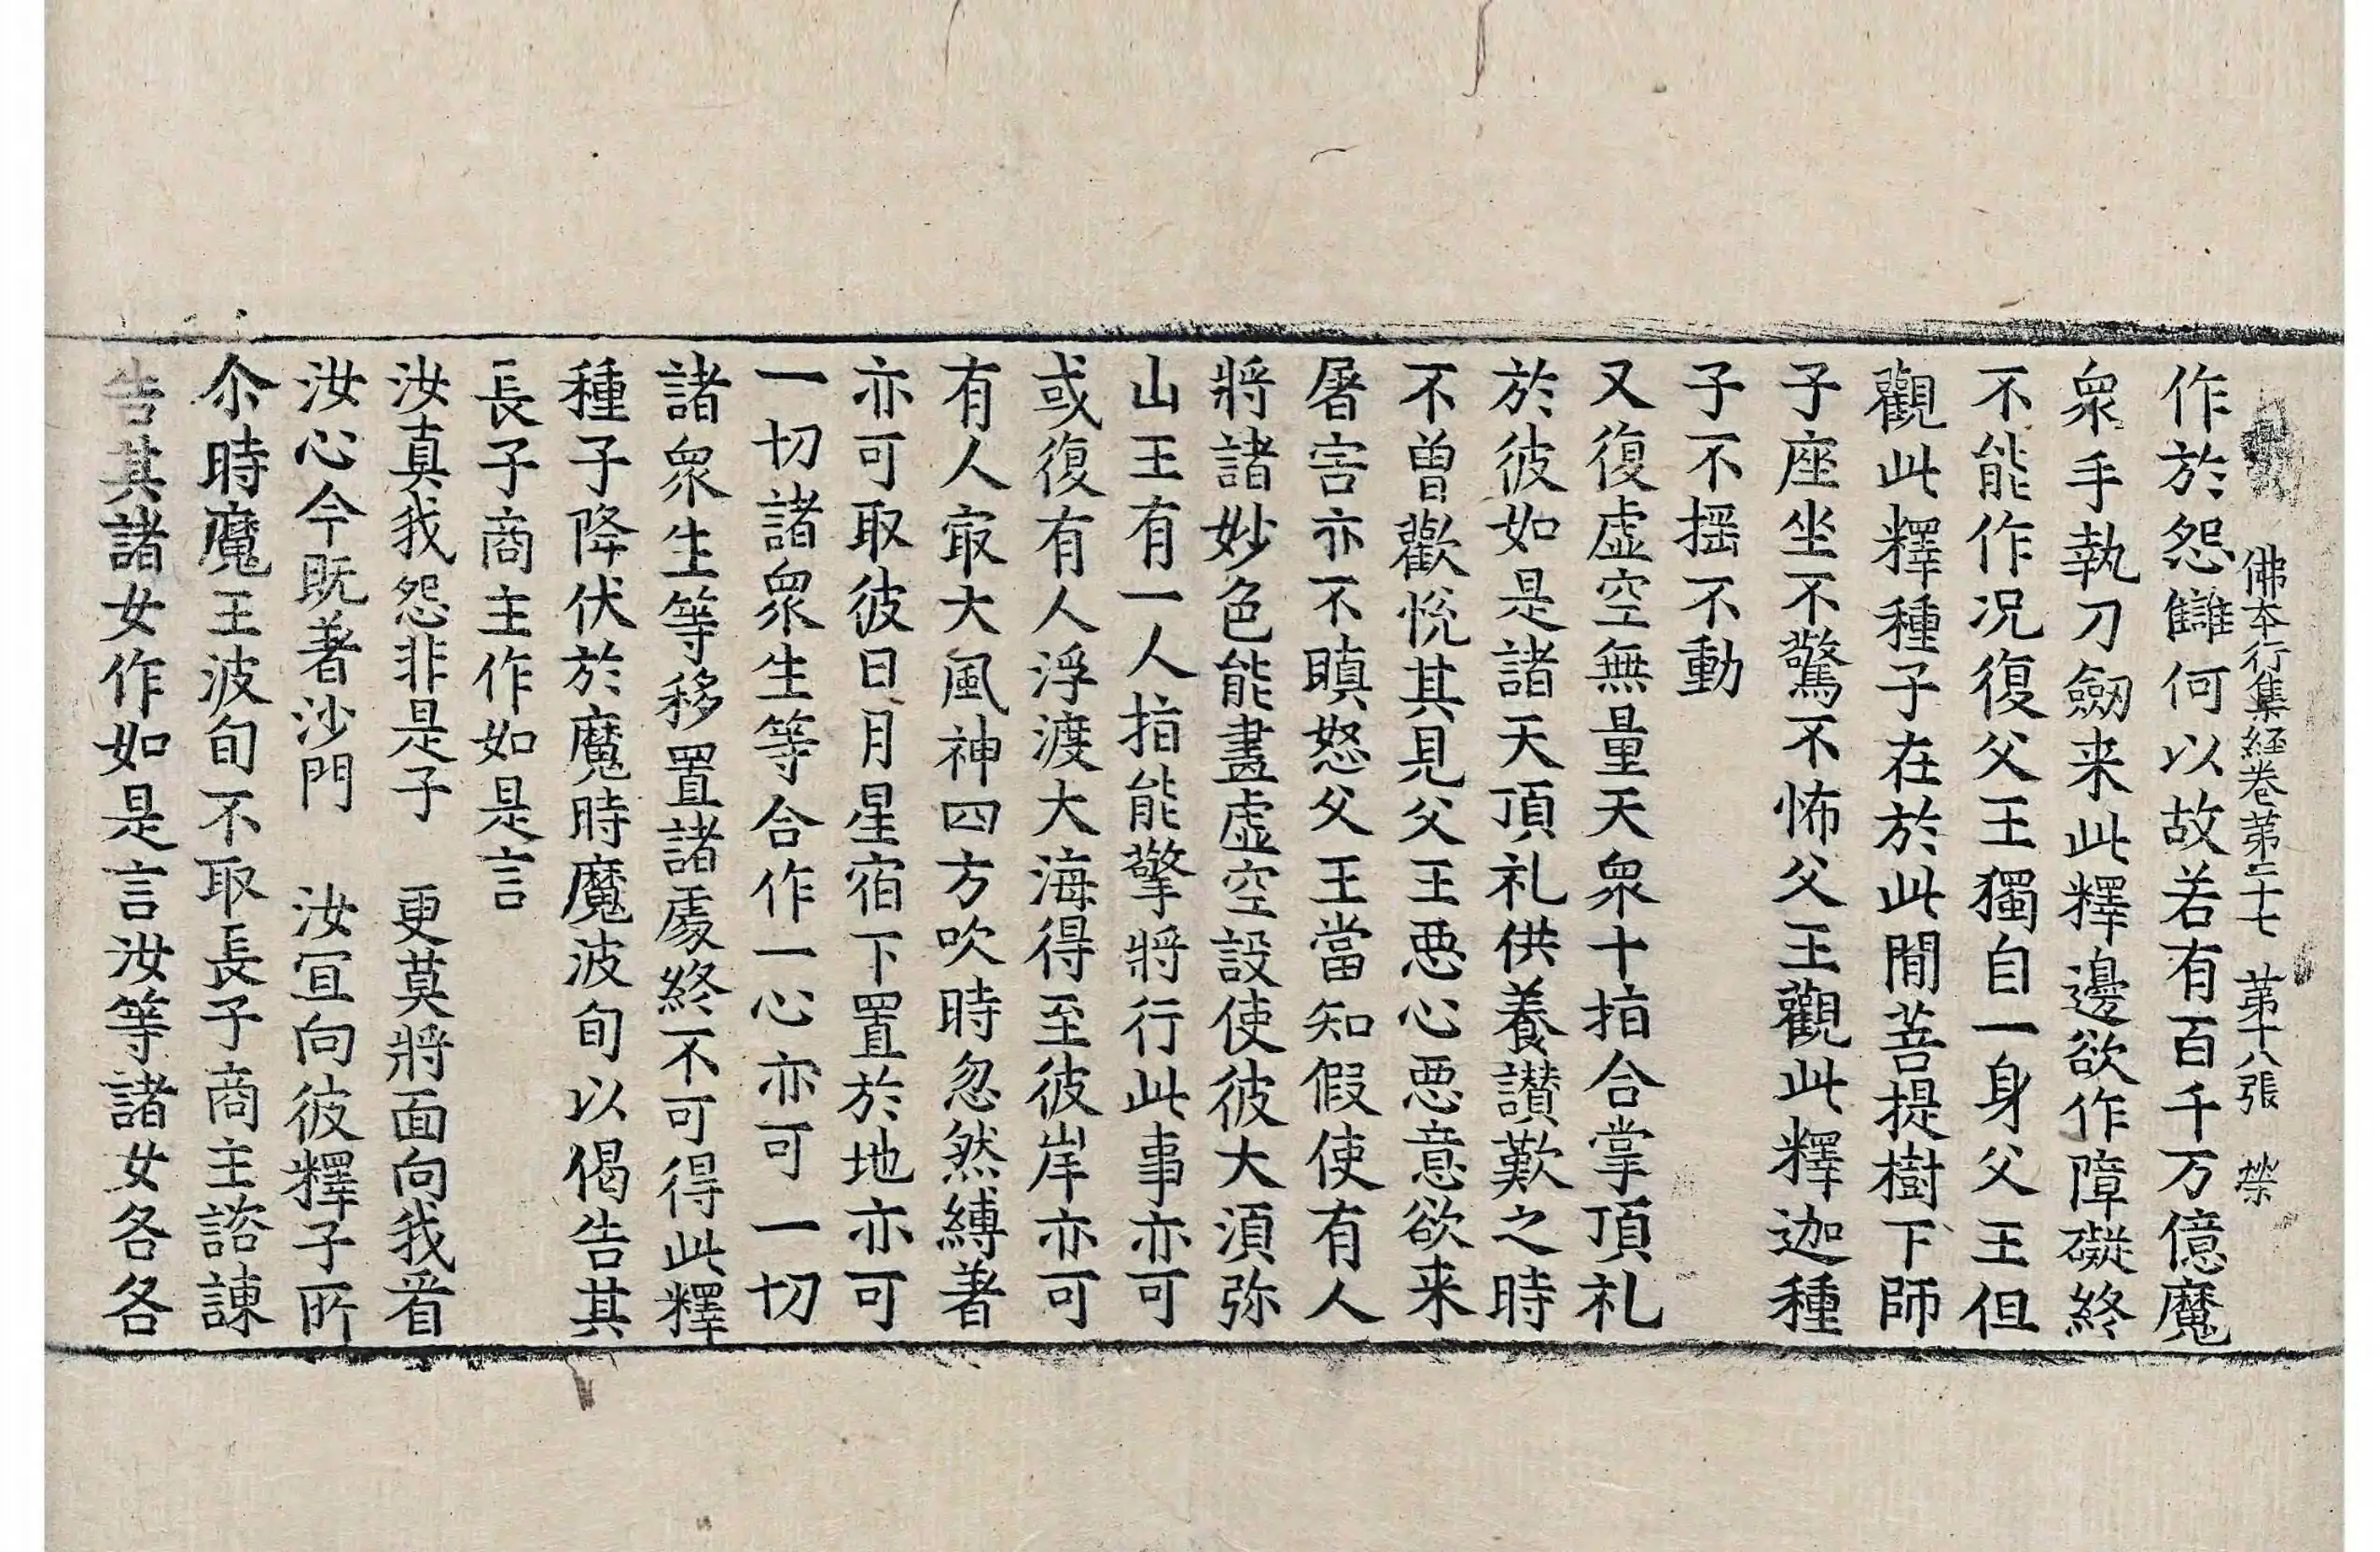 佛本行集経卷苐二十七 苐十八張 榮
作於怨讎何以故若有百千万億魔
衆手執刀劒来此釋邊欲作障礙終
不能作况復父王獨自一身父王但
觀此釋種子在於此閒菩提樹下師
子座坐不驚不怖父王觀此釋迦種
子不摇不動
又復虛空無量天衆十指合掌頂礼
於彼如是諸天頂礼供養讃歎之時
不曾歡悅其見父王惡心惡意欲来
屠害亦不瞋怒父王當知假使有人
將諸妙色能畫虛空設使彼大湏弥
山王有一人指能擎將行此事亦可
或復有人浮渡大海得至彼岸亦可
有人㝡大風神四方吹時忽然縛著
亦可取彼日月星宿下置於地亦可
一切諸衆生等合作一心亦可一切
諸衆生等移置諸處終不可得此釋
種子降伏於魔時魔波旬以偈告其
長子商主作如是言
汝真我怨非是子 更莫將面向我㸔
汝心今既著沙門 汝冝向彼釋子所
尒時魔王波旬不取長子商主諮諌
告其諸女作如是言汝等諸女各各